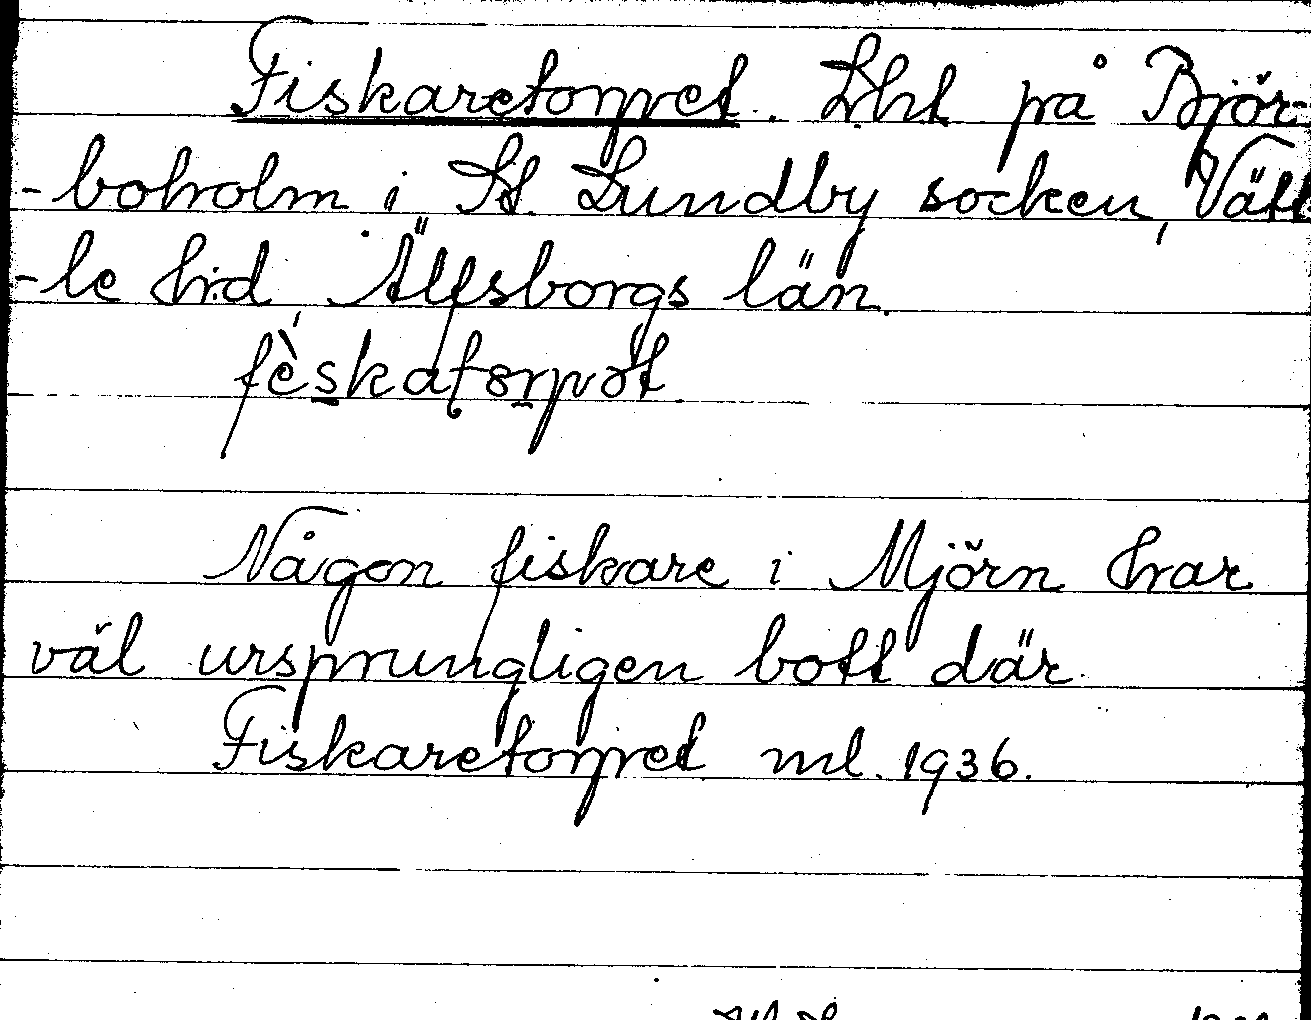 Fiskaretorpet. Lht på Björ-
-boholm i St. Lundby socken, Vätt
-le hd, Älfsborgs län.
fèskatorpət
Någon fiskare i Mjörn har
väl ursprungligen bott där.
Fiskaretorpet ml. 1936.